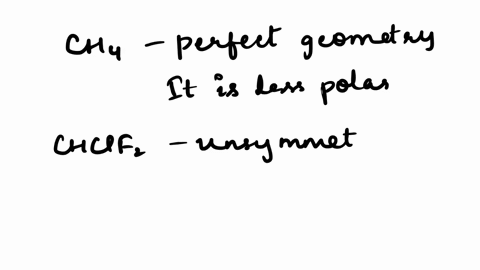 CH4 - perfect geometry
It is less polar
CHClF2 - unsymmet